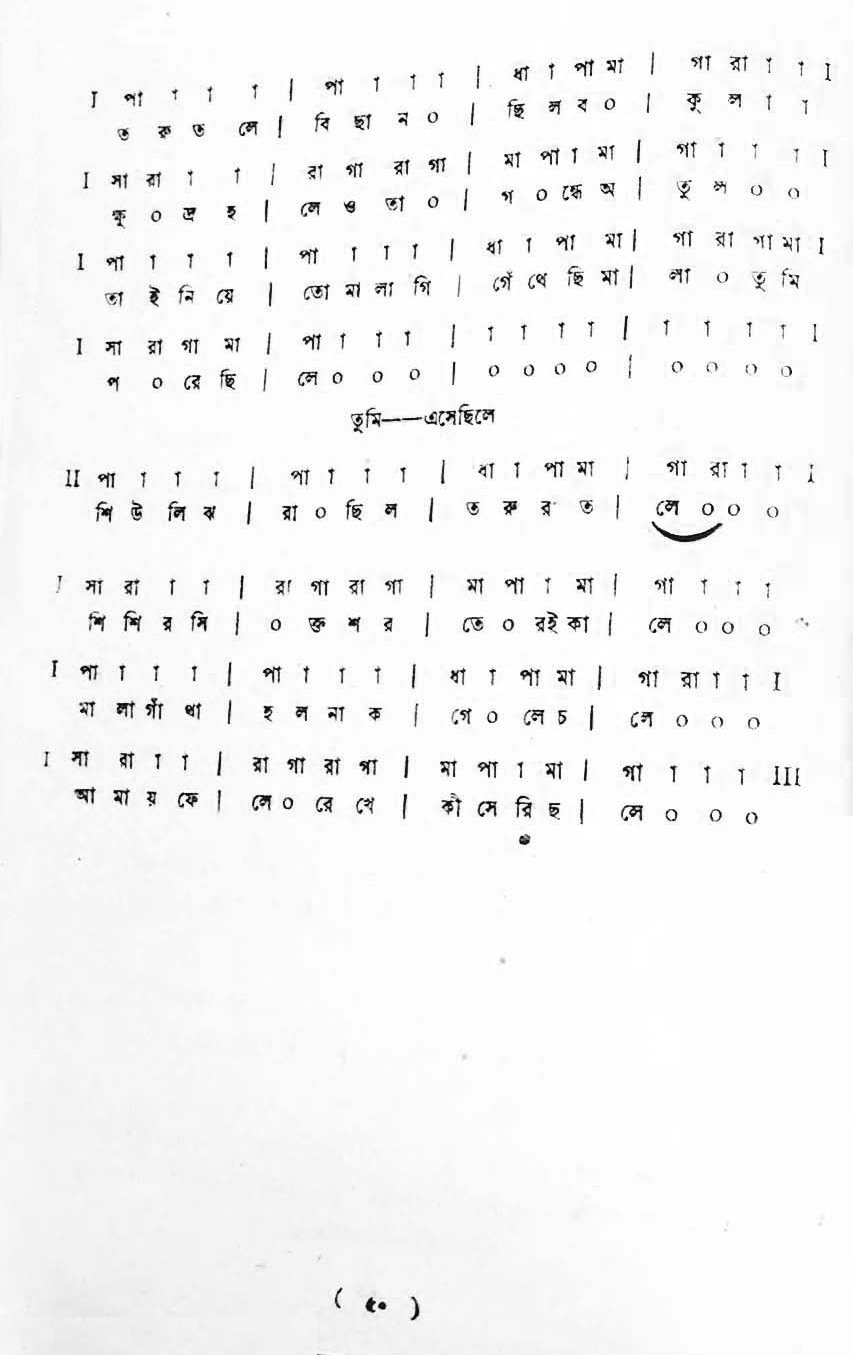 I পা া া া | পা া া া | ধা া পা মা | গা রা া া I
ত রু ত লে | বি ছা ন ০ | ছি ল ব ০ | কু ল া া
I সা রা া া | রা গা রা গা | মা পা া মা | গা া া া I
ক্ষু ০ দ্র হ | লে ও তা ০ | গ ০ ন্ধে অ | তু ল ০ ০
I পা া া া | পা া া া | ধা া পা মা | গা রা গা মা I
তা ই নি য়ে | তো মা লা গি | গেঁ থে ছি মা | লা ০ তু মি
I সা রা গা মা | পা া া া | া া া া | া া া া I
প ০ রে ছি | লে ০ ০ ০ | ০ ০ ০ ০ | ০ ০ ০ ০
তুমি——এসেছিলে
II পা া া া | পা া া া | ধা া পা মা | গা রা া া I
শি উ লি ঝ | রা ০ ছি ল | ত রু র ত | লে ০ ০ ০
I সা রা া া | রা গা রা গা | মা পা া মা | গা া া া
শি শি র সি | ০ ক্ত শ র | তে ০ রই কা | লে ০ ০ ০
I পা া া া | পা া া া | ধা া পা মা | গা রা া া I
মা লা গাঁ থা | হ ল না ক | গে ০ লে চ | লে ০ ০ ০
I সা রা া া | রা গা রা গা | মা পা া মা | গা া া া III
আ মা য় ফে | লে ০ রে খে | কী সে রি ছ | লে ০ ০ ০
( ৫০ )